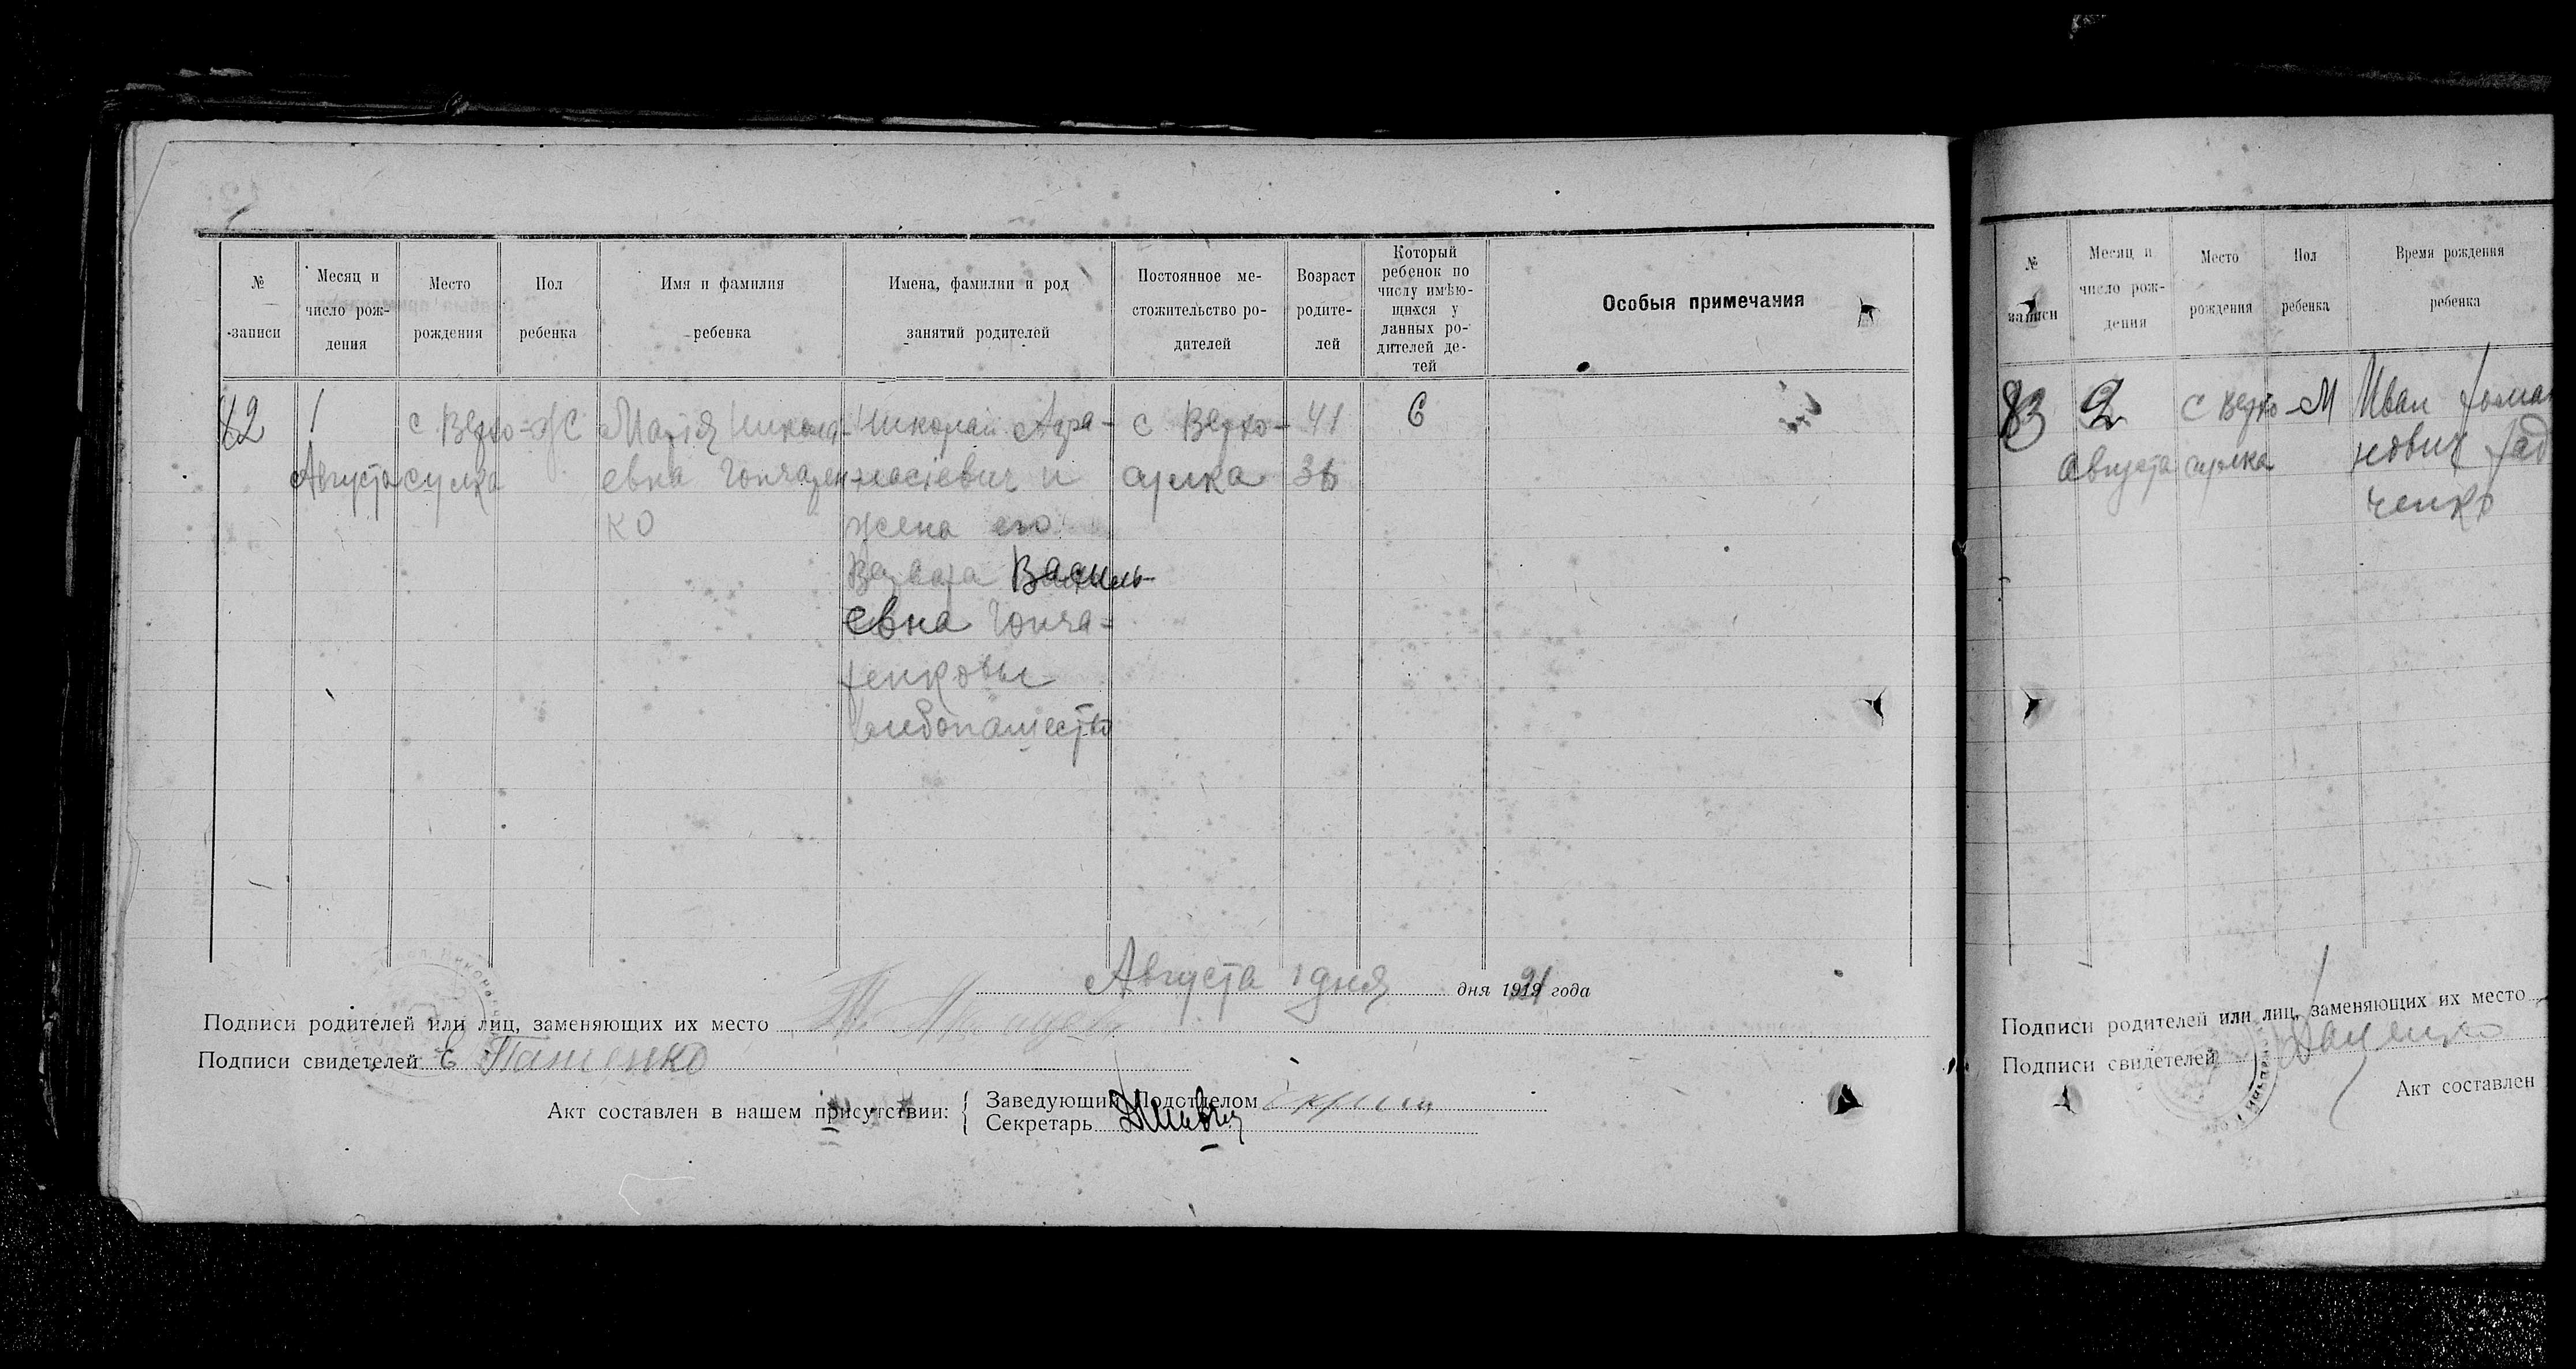 № записи
Месяц и число рождения
Место рождения
Пол ребенка
Имя и фамилия ребенка
Имена, фамилии и род занятий родителей
Постоянное местожительство родителей
Возраст родителей
Который ребенок по числу имѣющихся у данных родителей детей
Особыя примечания
82
1
Августа
с Верхо-
сулка
Ж
Марія Никола-
евна Гончарен-
ко
Николай
и
жена его
Варвара Василь-
евна Гонча-
ренковы
хлебопашество
с Верхо-
сулка
41
6
Августа 1 дня дня 1921 года
Подписи родителей или лиц, заменяющих их место
Подписи свидетелей Е Пащенко
Акт составлен в нашем присутствии:
Заведующий Подотделом
Секретарь
№ записи
Месяц и число рождения
Место рождения
Пол ребенка
Время рождения ребенка
83
2
Августа
с Верхо-
сулка
М
Иван Рома
нович Рад
ченко
Подписи родителей или лиц, заменяющих их место
Подписи свидетелей
Акт составлен